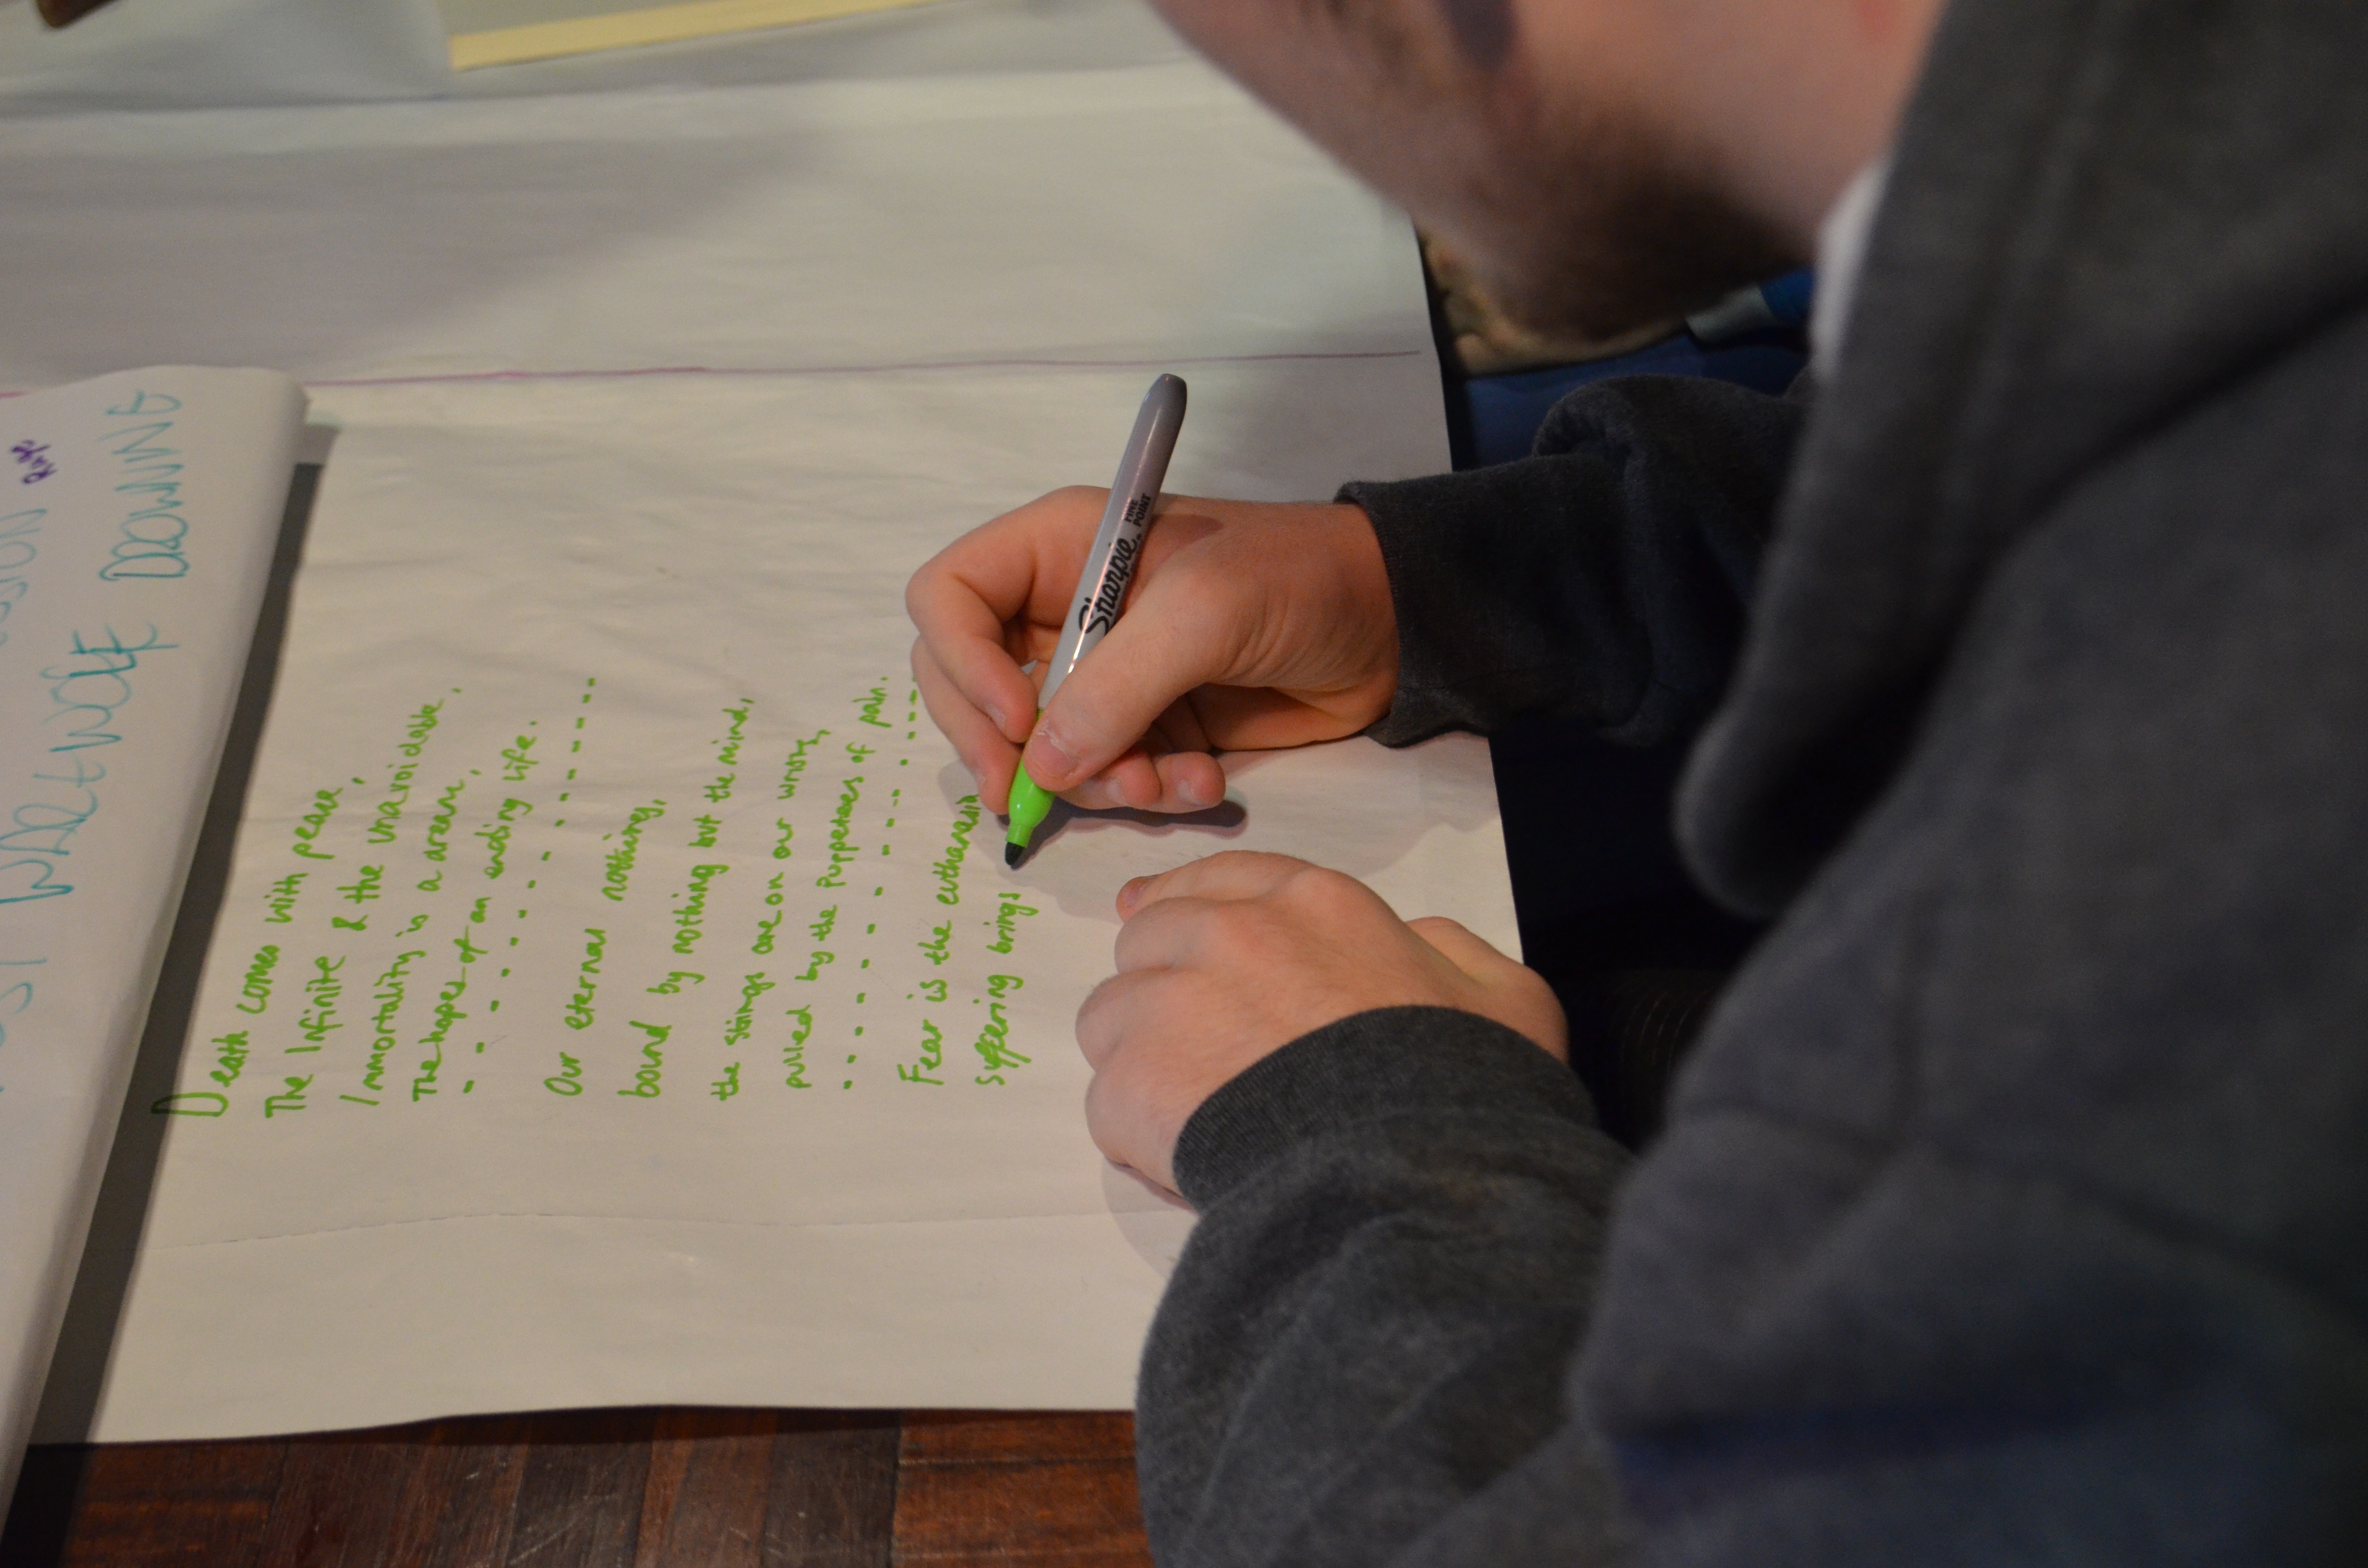 Death comes with peace,
The Infinite & the unavoidable,
Immortality is a dream,
The hopes of an ending life.
Our eternal nothing,
bound by nothing but the mind,
the strings are on our wrong,
pulled by the puppeteers of pain.
Fear is the euthanasia
suffering brings
Sharpie
FINE
POINT
WOLF DOWNE